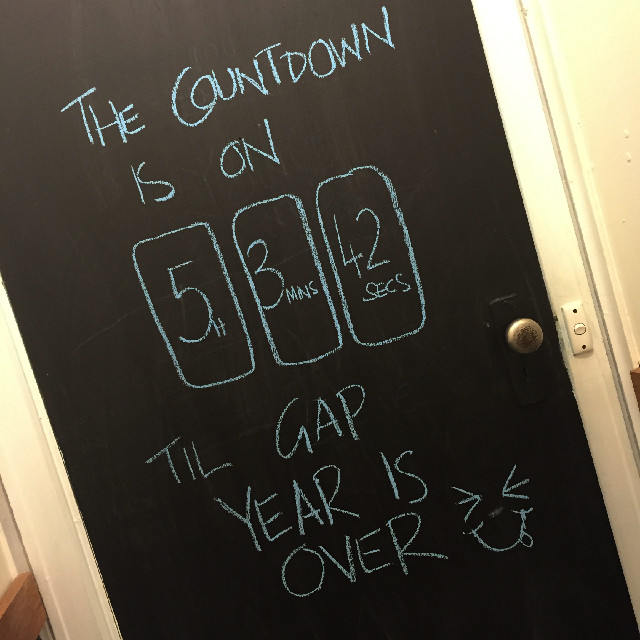 THE COUNTDOWN
IS ON
5H 3MINS 42SECS
TIL GAP
YEAR IS
OVER